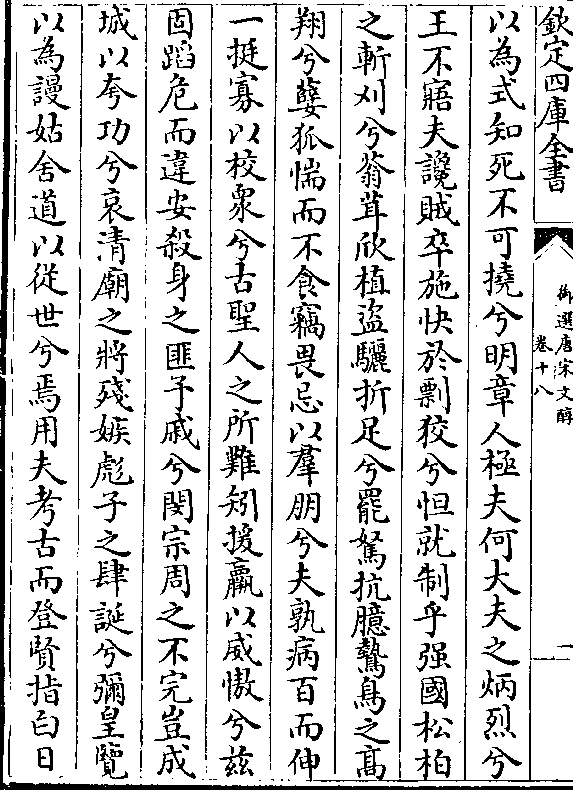 欽定四庫全書
御選唐宋文醇
卷十八
一
以為式知死不可撓兮明章人極夫何大夫之炳烈兮
王不寤夫讒賊卒施快於剽狡兮怛就制乎强國松柏
之斬刈兮蓊茸欣植盜驪折足兮罷駑抗臆鷙鳥之髙
翔兮孽狐惴而不食竊畏忌以羣朋兮夫孰病百而伸
一挺寡以校衆兮古聖人之所難矧援羸以威慠兮兹
固蹈危而違安殺身之匪予戚兮閔宗周之不完豈成
城以夸功兮哀清廟之將殘嫉彪子之肆誕兮彌皇覽
以為謾姑舍道以從世兮焉用夫考古而登賢指白日